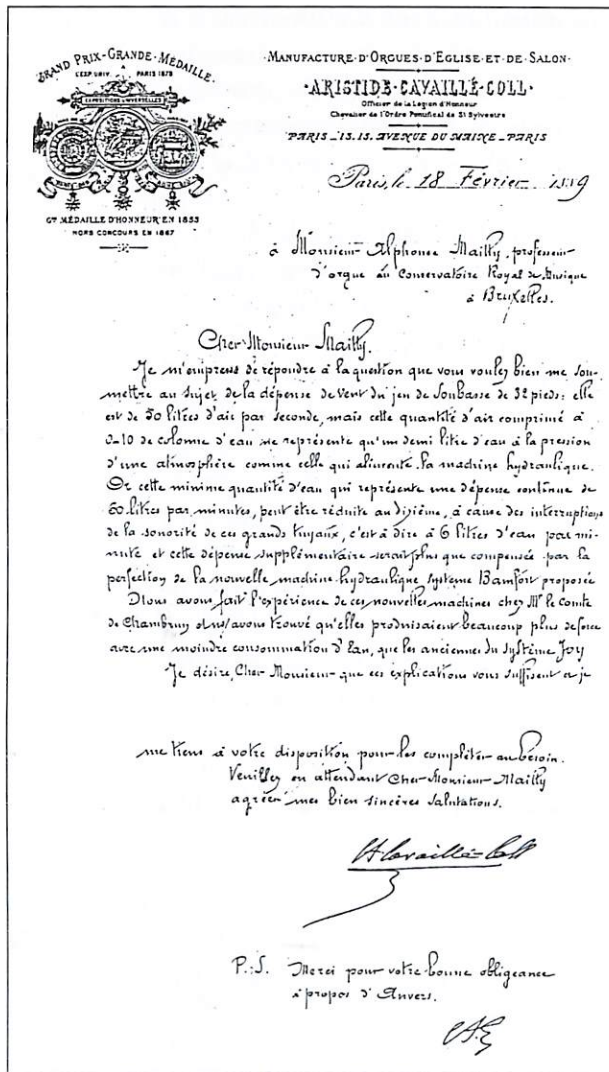 GRAND PRIX-GRANDE MÉDAILLE.
A
L'EXP. UNIV. PARIS 1878
EXPOSITIONS UNIVERSELLES
GDE MÉDAILLE D'HONNEUR EN 1855
HORS CONCOURS EN 1867
·MANUFACTURE·D'ORGUES·D'EGLISE·ET·DE·SALON·
·ARISTIDE·CAVAILLÉ·COLL·
Officier de la Légion d'Honneur
Chevalier de l'Ordre Pontifical de St Sylvestre
PARIS_13.15. AVENUE DU MAINE_PARIS
Paris, le 18 Février 1889
à Monsieur Alphonse Mailly, professeur
d'orgue au Conservatoire Royal de Musique
à Bruxelles.
Cher Monsieur Mailly.
Je m'empresse de répondre à la question que vous voulez bien me sou-
mettre au sujet de la dépense de vent du jeu de Soubasse de 32 pieds: elle
est de 50 litres d'air par seconde, mais cette quantité d'air comprimé à
0-10 de colonne d'eau ne représente qu'un demi litre d'eau à la pression
d'une atmosphère comme celle qui alimente la machine hydraulique.
Or cette minime quantité d'eau qui représente une dépense continue de
60 litres par minutes, peut être réduite au dixième, à cause des interruptions
de la sonorité de ces grands tuyaux, c'est à dire à 6 litres d'eau par mi-
nute et cette dépense supplémentaire serait plus que compensée par la
perfection de la nouvelle machine hydraulique système Bamfort proposée
Nous avons fait l'expérience de ces nouvelles machines chez Mr le Comte
de Chambrun et ns/avons trouvé qu'elles produisaient beaucoup plus de force
avec une moindre consommation d'Eau, que les anciennes du système Joy
Je désire, Cher Monsieur que ces explications vous suffisent et je
me tiens à votre disposition pour les compléter au besoin.
Veuillez en attendant Cher Monsieur Mailly
agréer mes bien sincères salutations.
A Cavaillé-Coll
P.S. Merci pour votre bonne obligeance
à propos d'Anvers.